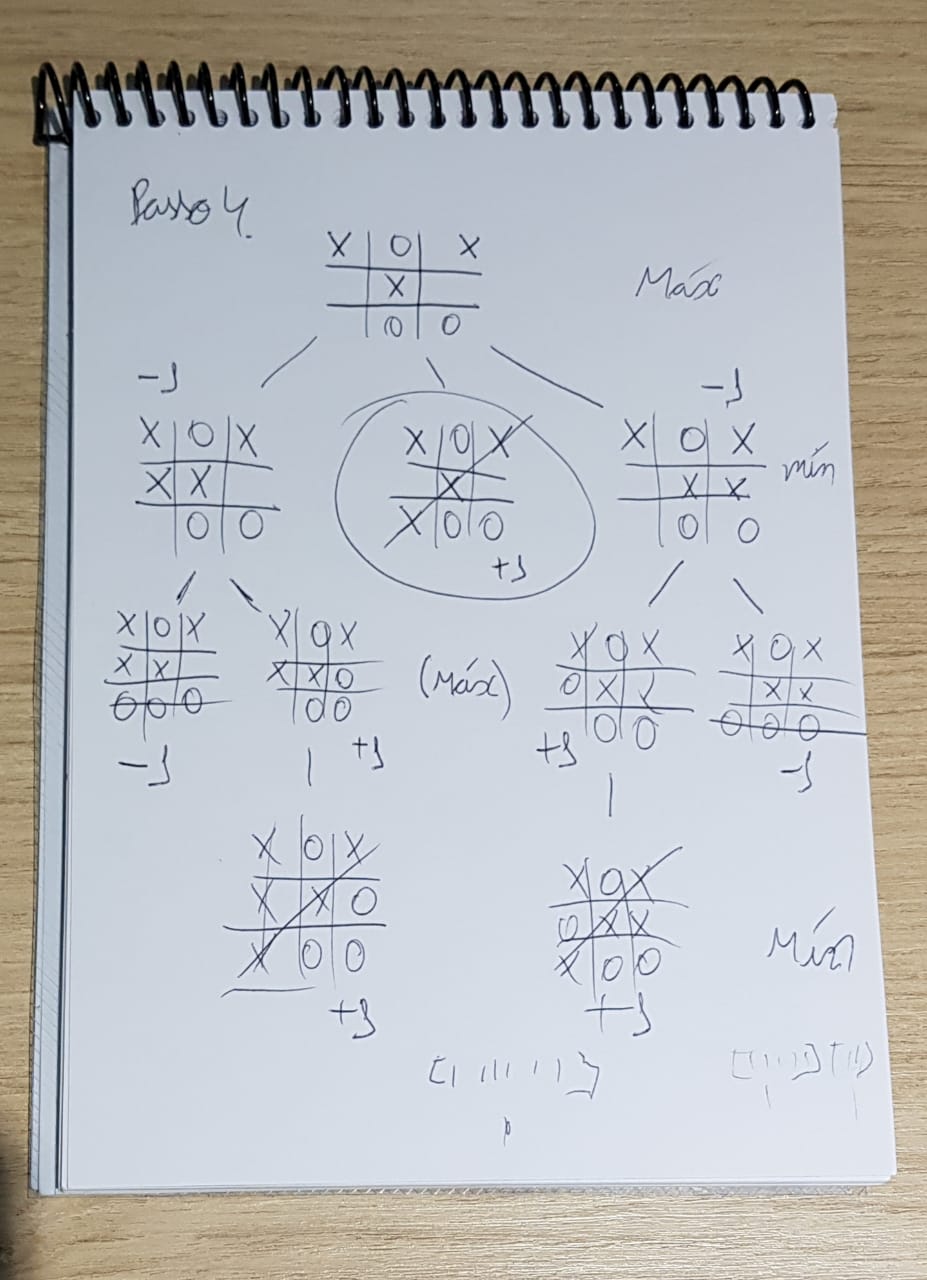 Passo 4.
X | O | X
X
O | O
Máx
-1
-1
X | O | X
X | X
O | O
X | O | X
X
X | O | O
+1
X | O X
X X
O | O
mín
X | O | X
X | X
O O O
-1
X | O X
X | X O
O O
+1
(Máx)
X | O X
O X X
O O
+1
X O X
X X
O O O
-1
X | O | X
X X O
X | O | O
+1
X O X
O X X
X O O
+1
Mín